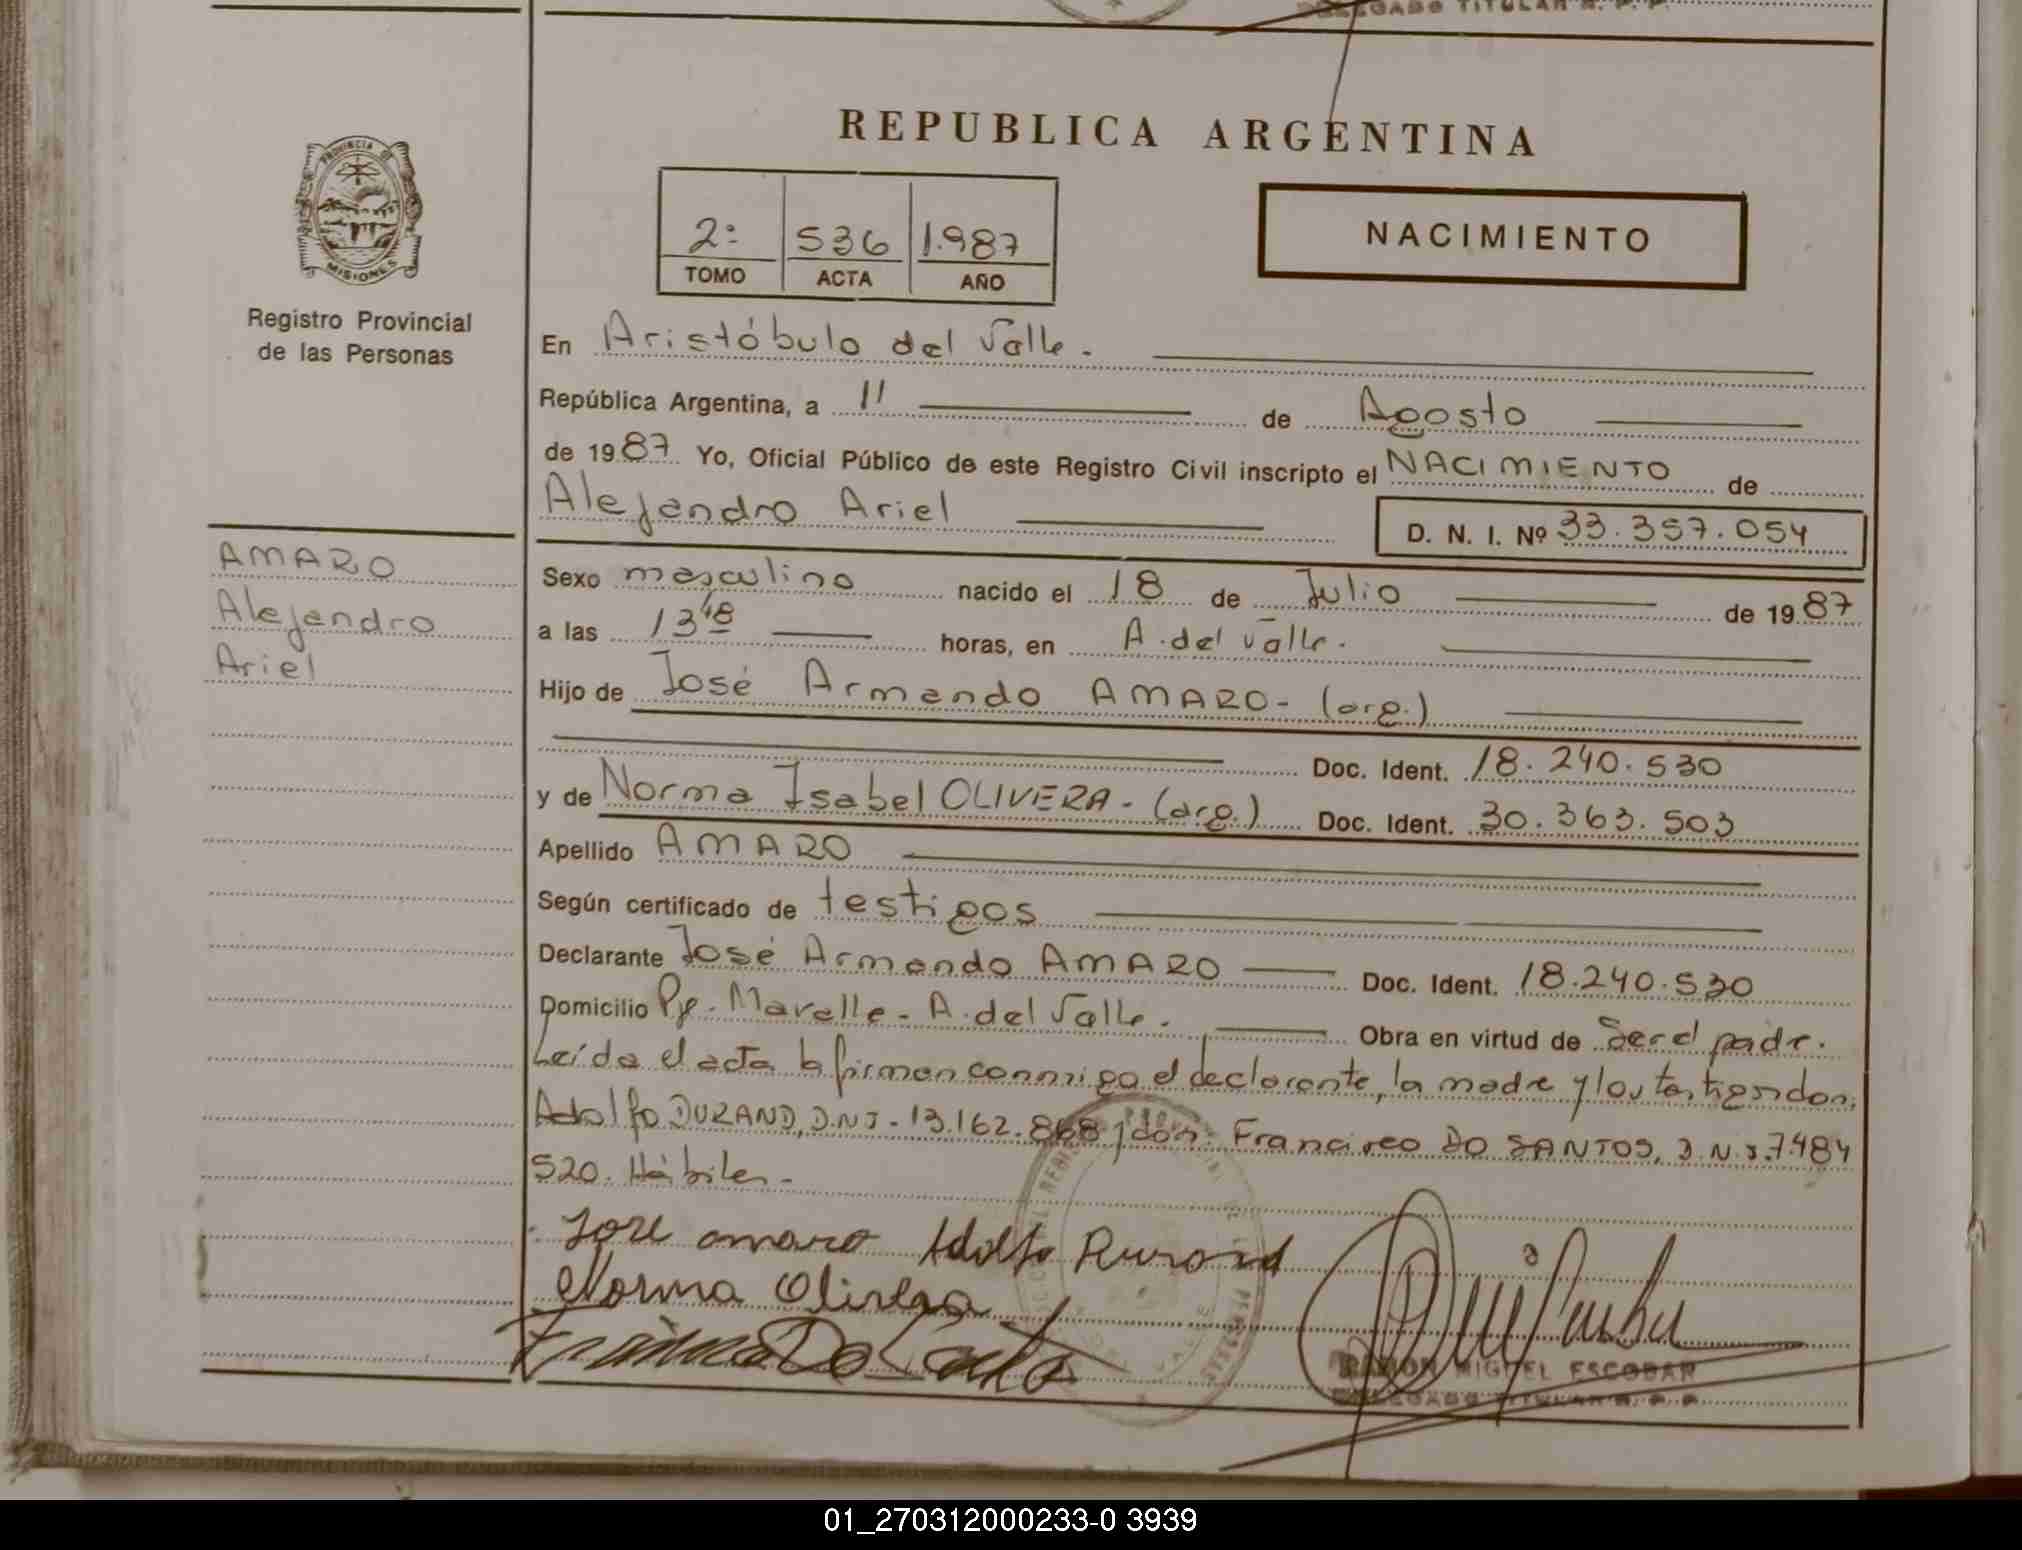 DELEGADO TITULAR R. P. P.
REPUBLICA ARGENTINA
PROVINCIA DE
MISIONES
Registro Provincial
de las Personas
2º 536 1.987
TOMO ACTA AÑO
NACIMIENTO
En Aristóbulo del Valle.
República Argentina, a 11 de Agosto
de 1987 Yo, Oficial Público de este Registro Civil inscripto el NACIMIENTO de
Alejandro Ariel D. N. I. Nº 33.357.054
AMARO
Alejandro
Ariel
Sexo masculino nacido el 18 de Julio de 1987
a las 13 48 horas, en A. del Valle.
Hijo de José Armando AMARO - (arg.)
Doc. Ident. 18.240.530
y de Norma Isabel OLIVERA - (arg.) Doc. Ident. 30.363.503
Apellido AMARO
Según certificado de testigos
Declarante José Armando AMARO Doc. Ident. 18.240.530
Domicilio Pje. Maralle - A. del Valle. Obra en virtud de Ser el padre.
Leída el acta la firman conmigo el declarante, la madre y los testigos don
Adolfo DURAND, D.N.I. - 13.162.868 y don Francisco DO SANTOS, D.N.I. 7.484
520. Hábiles.-
Jose amaro Adolfo Durand
Norma Olivera
RAMON MIGUEL ESCOBAR
DELEGADO TITULAR R. P. P.
01_270312000233-0 3939